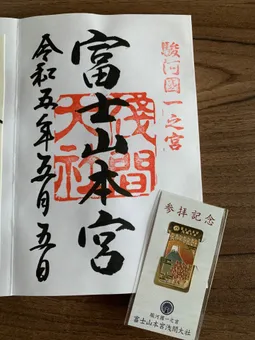 駿河國一之宮
富士山本宮
淺間大社
令和五年五月五日
参拝記念
駿河國一之宮
富士山本宮浅間大社